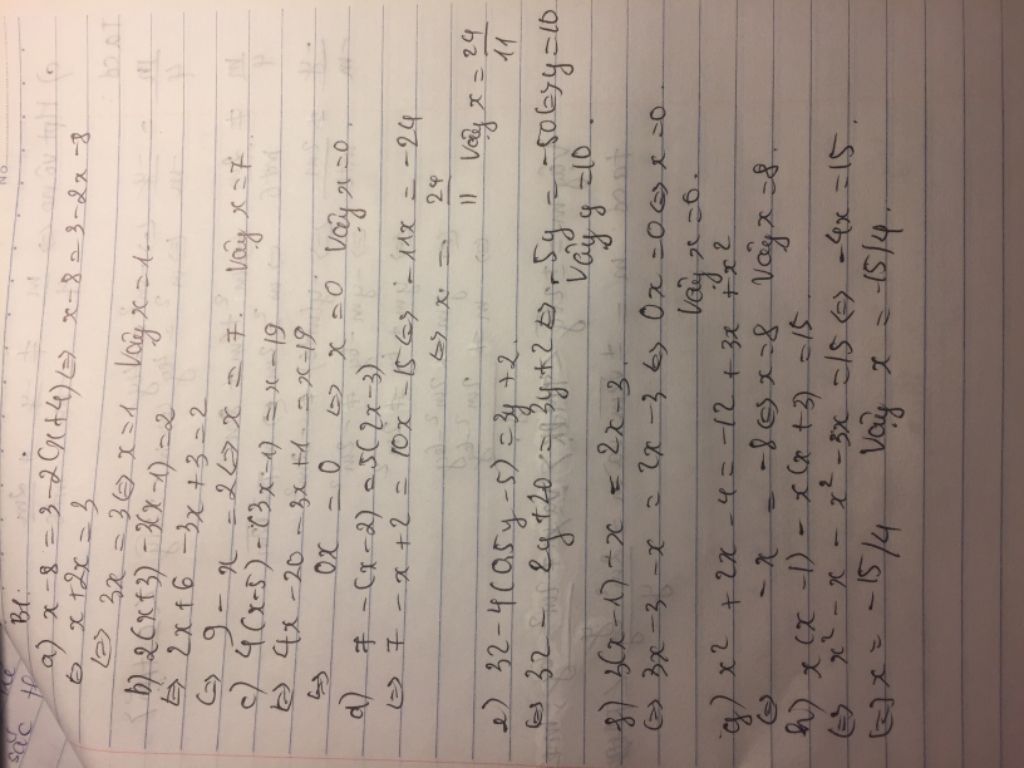 B1.
a) x - 8 = 3 - 2(x+4) ⇔ x - 8 = 3 - 2x - 8
⇔ x + 2x = 3
⇔ 3x = 3 ⇔ x = 1 Vậy x = 1.
b) 2(x+3) - 3(x-1) = 2
⇔ 2x + 6 - 3x + 3 = 2
⇔ 9 - x = 2 ⇔ x = 7. Vậy x = 7
c) 4(x-5) - (3x-1) = x - 19
⇔ 4x - 20 - 3x + 1 = x - 19
⇔ 0x = 0 ⇔ x = 0 Vậy x = 0
d) 7 - (x-2) = 5(2x-3)
⇔ 7 - x + 2 = 10x - 15 ⇔ - 11x = -24
⇔ x = 24/11 Vậy x = 24/11
e) 32 - 4(0,5y - 5) = 3y + 2
⇔ 32 - 2y + 20 = 3y + 2 ⇔ -5y = -50 ⇔ y = 10
Vậy y = 10
f) 3(x-1) - x = 2x - 3
⇔ 3x - 3 - x = 2x - 3 ⇔ 0x = 0 ⇔ x = 0
Vậy x = 0.
g) x² + 2x - 4 = -12 + 3x + x²
⇔ -x = -8 ⇔ x = 8 Vậy x = 8.
h) x(x-1) - x(x+3) = 15
⇔ x² - x - x² - 3x = 15 ⇔ -4x = 15
⇔ x = -15/4 Vậy x = -15/4.